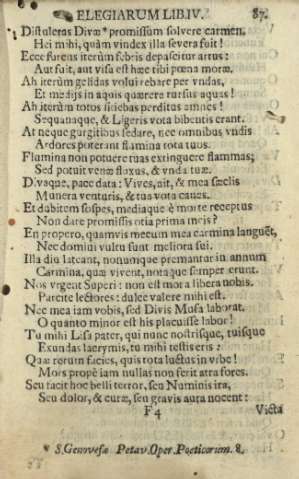 ELEGIARUM LIB.IV. 87.
Distuleras Divæ* promissum solvere carmen.
Hei mihi, quàm vindex illa severa fuit!
Ecce furens iterùm febris depascitur artus:
Aut fuit, aut visa est hæc tibi pœna moræ.
Ah iterùm gelidas volui rebare per vndas,
Et medijs in aquis quærere rursus aquas!
Ah iterùm totos sitiebas perditus amnes!
Sequanaque, & Ligeris vota bibentis erant.
At neque gurgitibus sedare, nec omnibus vndis
Ardores poterant flamina tota tuos.
Flumina non potuere tuas extinguere flammas;
Sed potuit venæ fluxus, & vnda tuæ.
Divaque, pace data: Vives, ait, & mea sæclis
Munera venturis, & tua vota canes.
Et dabitem sospes, mediaque è morte receptus
Non dare promissis otia prima meis?
En propero, quamvis mecum mea carmina languẽt,
Nec domini vultu sunt meliora sui.
Illa diu lateant, nonumque premantur in annum
Carmina, quæ vivent, notaque semper erunt.
Nos vrgent Superi: non est mora libera nobis.
Parcite lectores: dulce valere mihi est.
Nec mea iam vobis, sed Divis Musa laborat.
O quanto minor est his placuisse labor!
Tu mihi Lisa pater, qui nunc nostrisque, tuisque
Exundas lacrymis, tu mihi testis eris:
Quæ rerum facies, quis tota luctus in vrbe!
Mors propè iam nullas non ferit atra fores.
Seu facit hoc belli terror, seu Numinis ira,
Seu dolor, & curæ, seu gravis aura nocent:
F4 Victa
S. Genovefæ Petav. Oper. Poeticorum. 8.